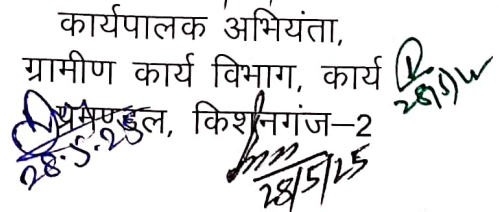 कार्यपालक अभियंता,
ग्रामीण कार्य विभाग, कार्य
प्रमण्डल, किशनगंज–2
28.5.25
28/5/25